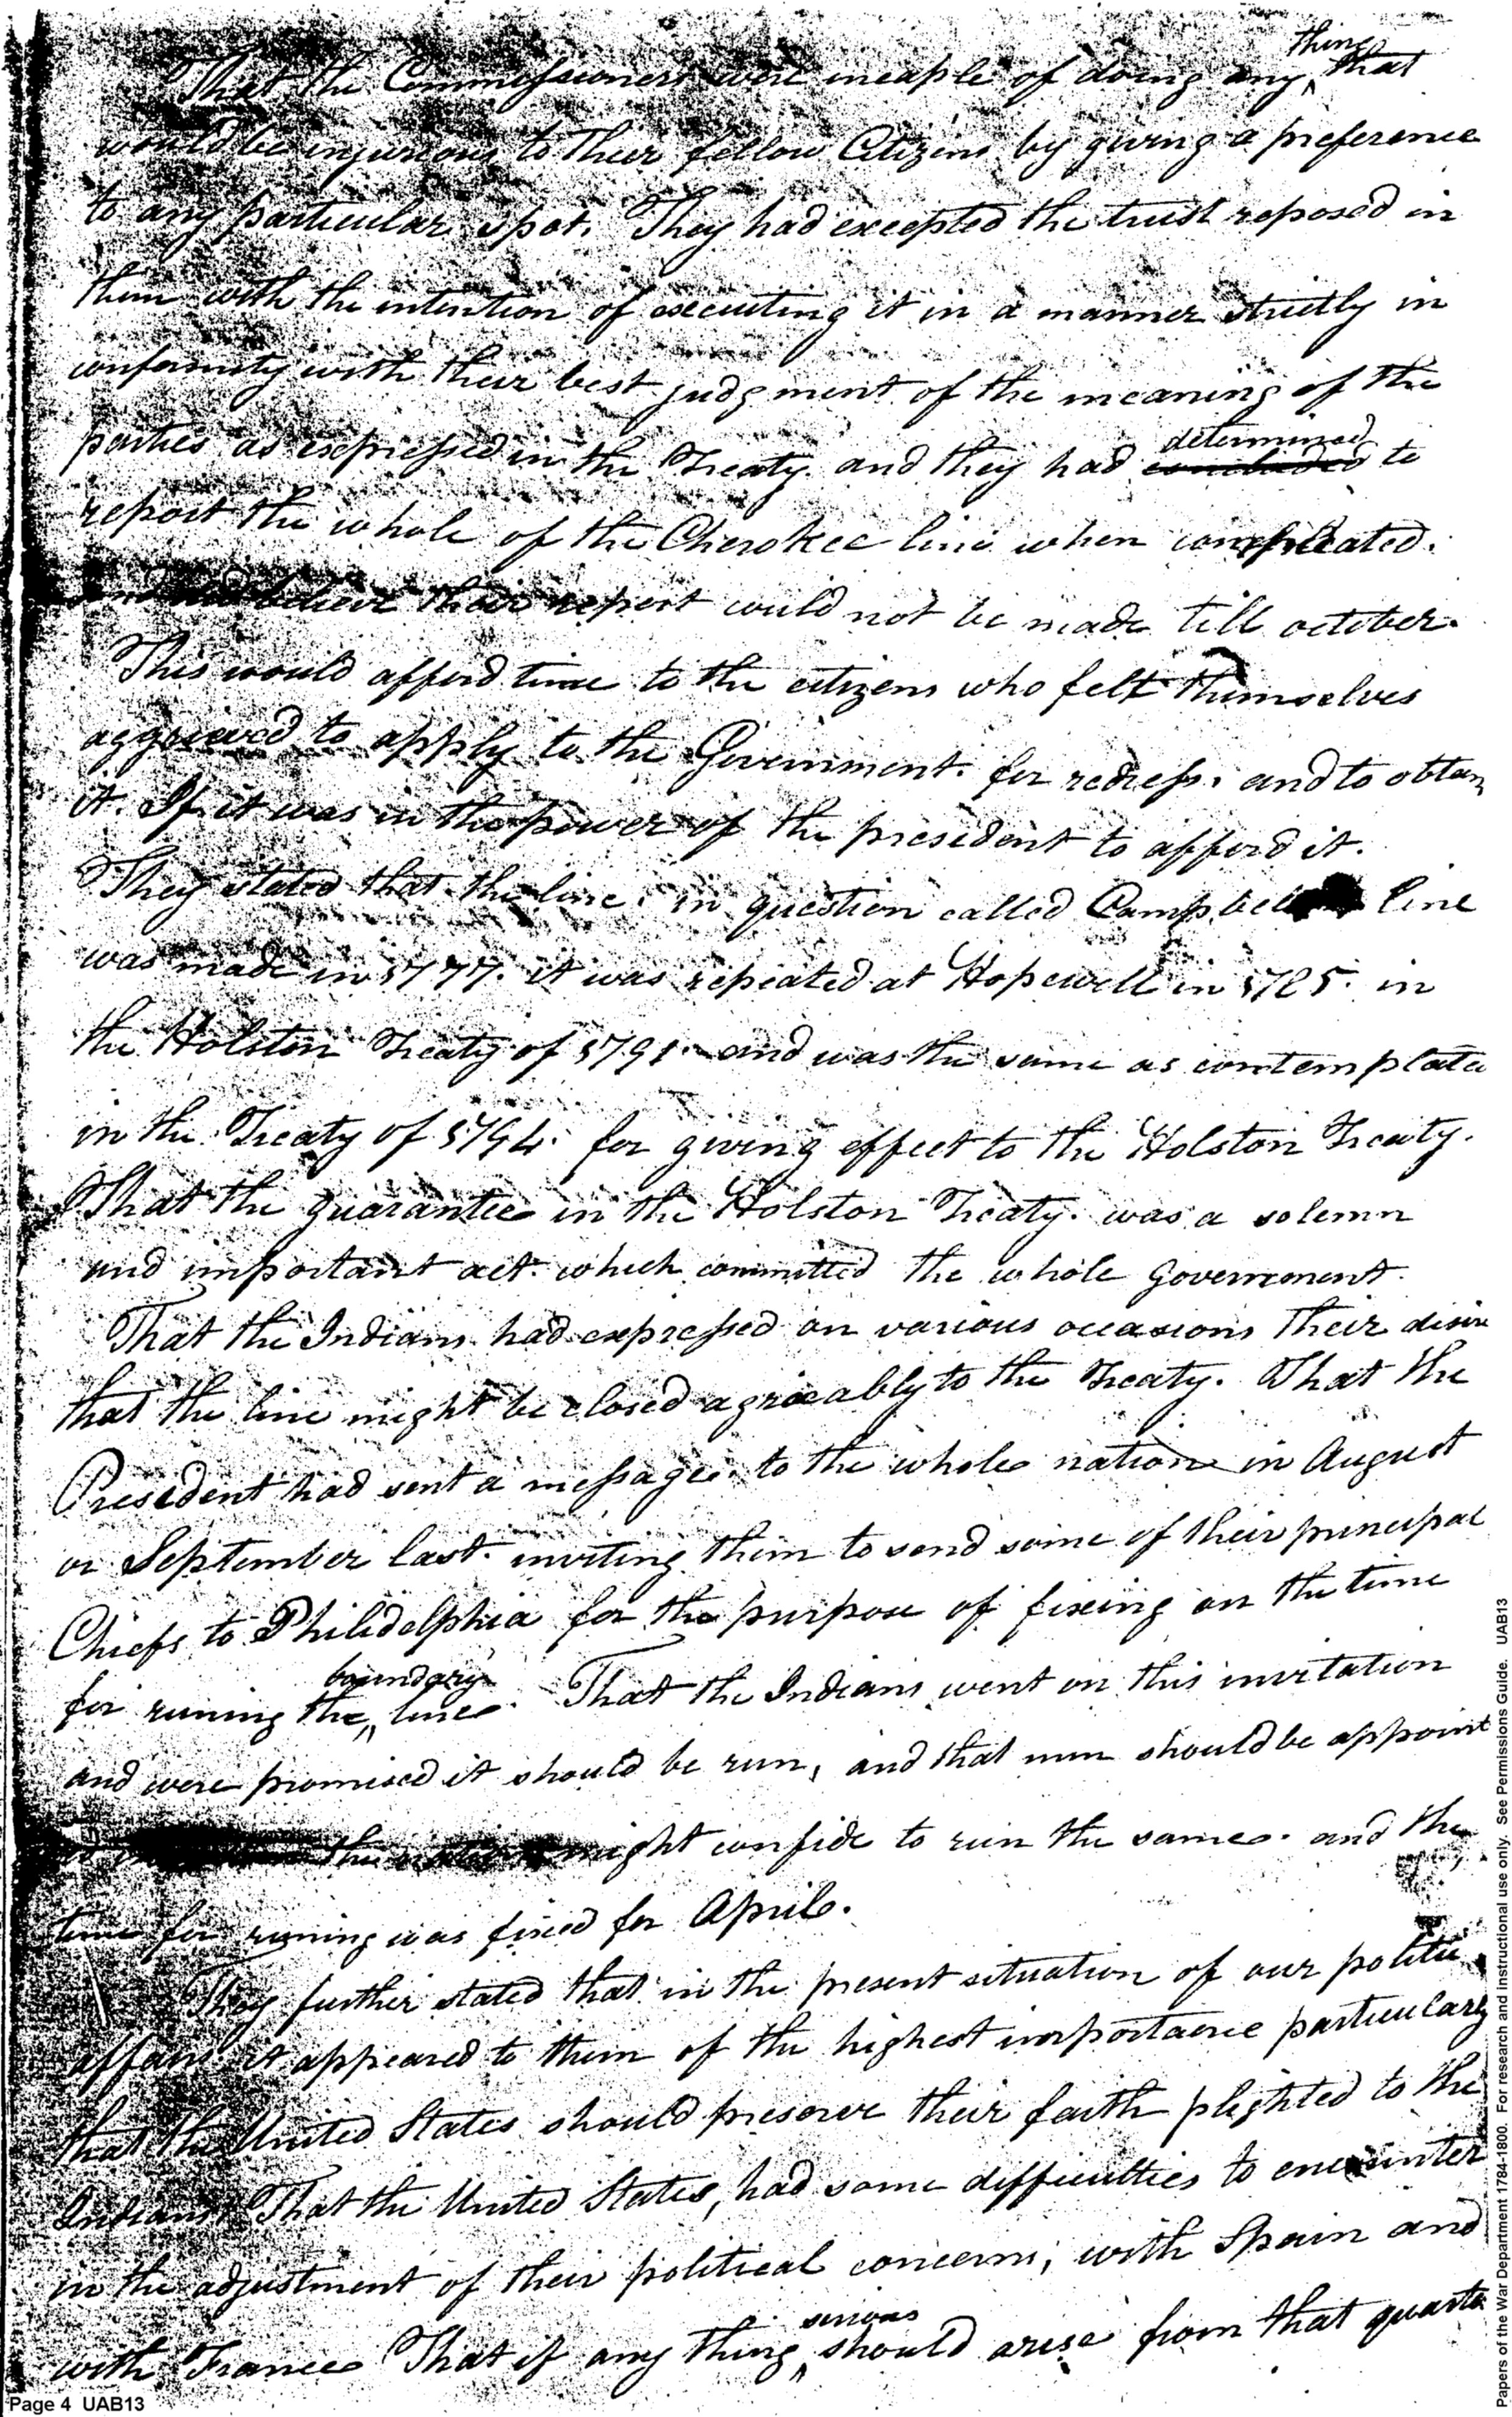 thing
That the Commissioners were incaple of doing any ‸ that
would be injurious to their fellow Citizens by giving a preference
to any particular spot. They had excepted the trust reposed in
them with the intention of executing it in a manner strictly in
conformity with their best judgment of the meaning of the
parties as expressed in the Treaty. and they had concluded to
determined
report the whole of the Cherokee line when completed.
believe their report could not be made till october.
This would afford time to the citizens who felt themselves
aggrieved to apply to the Government. for redress. and to obtan
it. If it was in the power of the president to afford it.
They stated that the line. in question called Campbells line
was made in 1777. it was repeated at Hopewell in 1785. in
the Holston Treaty of 1791. and was the same as contemplate
in the Treaty of 1794. for giving effect to the Holston Treaty.
That the guarantee in the Holston Treaty. was a solemn
and important act. which committed the whole Government.
That the Indians had expressed on various occasions their desire
that the line might be closed agreeably to the Treaty. That the
President had sent a message. to the whole nation in August
or September last. inviting them to send some of their principal
Chiefs to Philidelphia for the purpose of fixing on the time
boundary
for runing the ‸ line. That the Indians went on this invitation
and were promised it should be run, and that men should be appoint
the nation might confide to run the same. and the
time for runing was fixed for April.
They further stated that in the present situation of our politic
affairs it appeared to them of the highest importance particularly
that the United States should preserve their faith plighted to the
Indians. That the United States, had some difficulties to encounter
in the adjustment of their political concerns, with Spain and
serious
with France That if any thing ‸ should arise from that quarte
Page 4 UAB13
Papers of the War Department 1784-1800. For research and instructional use only. See Permissions Guide. UAB13